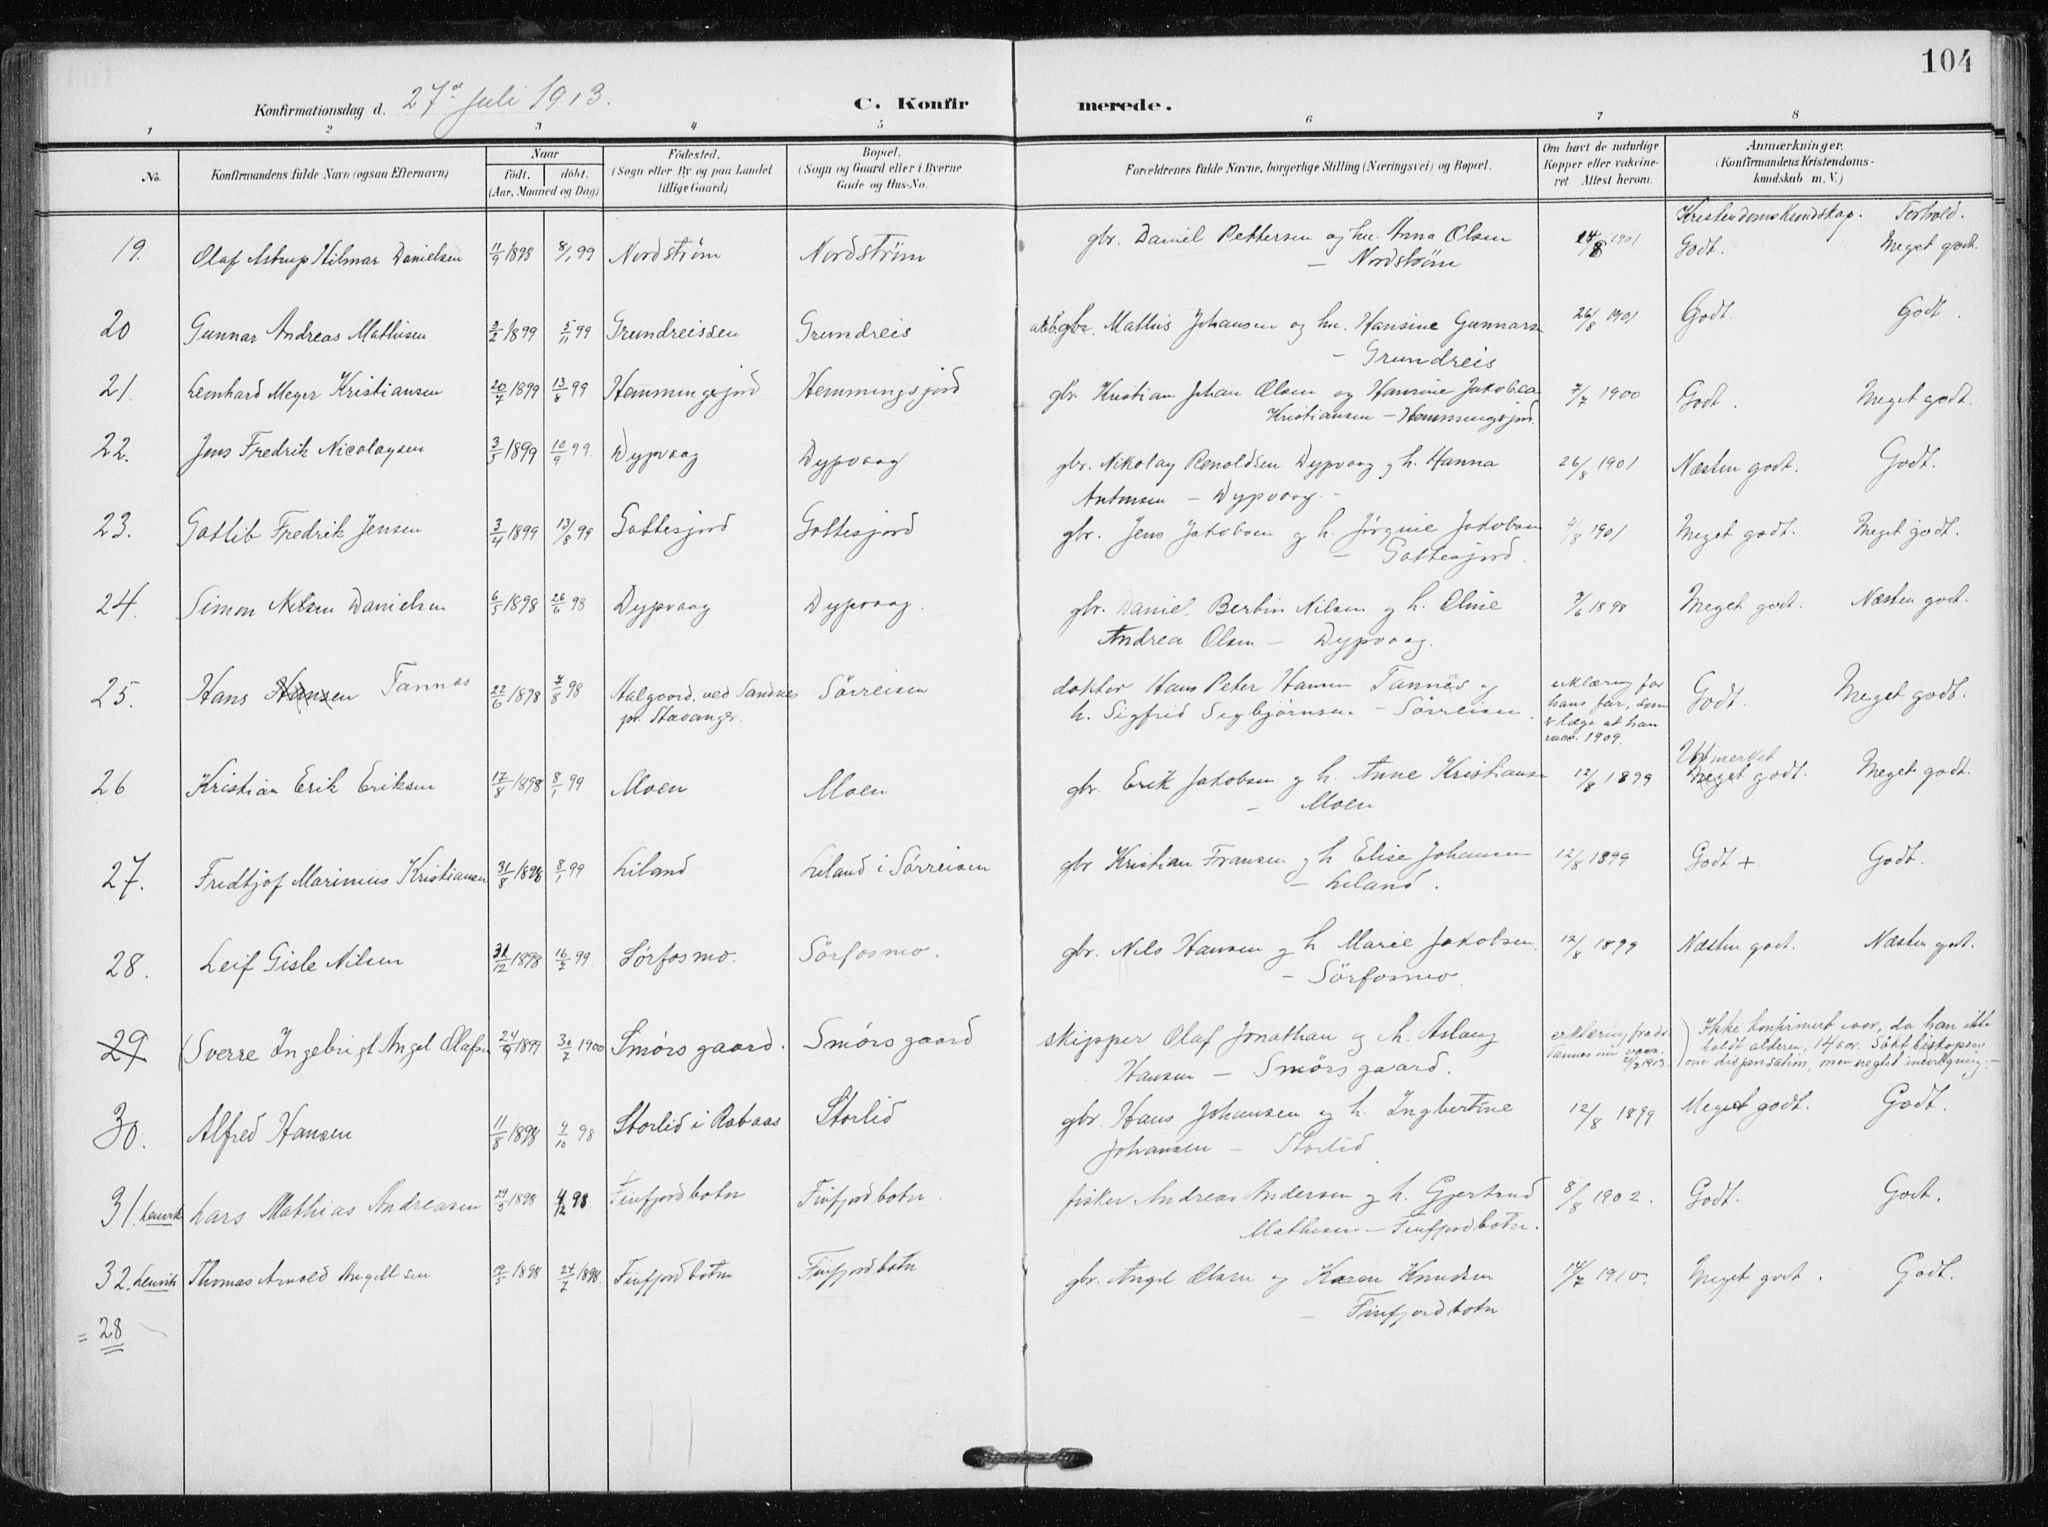 104
Konfirmationsdag d. 27de Juli 1913. C. Konfirmerede.
1 2 3 4 5 6 7 8
No. Konfirmandens fulde Navn (ogsaa Efternavn) Naar født. døbt. (Aar, Maaned og Dag) Fødested. (Sogn eller By og paa Landet tillige Gaard) Bopæl. (Sogn og Gaard eller i Byerne Gade og Hus-No. Forældrenes fulde Navne, borgerlige Stilling (Næringsvei) og Bopæl. Om havt de naturlige Kopper eller vakcineret Attest herom. Anmærkninger. (Konfirmandens Kristendomskundskab m. V.)
Kristendomskundskap. Forhold.
19. Olaf Astrup Hilmar Danielsen 11/9 1898 8/1 99 Nordstrøm Nordstrøm gbr. Daniel Pettersen og hu. Anna Olsen 24/8 1901 Godt. Meget godt.
– Nordstrøm
20 Gunnar Andreas Mathisen 3/2 1899 5/11 99 Grundreissen Grundreis gbr. Mathis Johansen og hu. Hansine Gunnars 26/8 1901 Godt. Godt.
– Grundreis
21. Lenhard Meyer Kristiansen 20/7 1899 13/8 99 Hemmingsjord Hemmingsjord gbr. Kristian Johan Olsen og Hansine Jakobea 7/7 1900 Godt. Meget godt.
Kristiansen – Hemmingsjord.
22. Jens Fredrik Nicolaysen 3/5 1899 10/9 99. Dypvaag Dypvaag gbr. Nikolay Renoldsen Dypvaag og h. Hanna 26/8 1901 Næsten godt. Godt.
Antonsen – Dypvaag. –
23. Gotlib Fredrik Jensen 3/4 1899 13/8 99 Gottesjord Gottesjord gbr. Jens Jakobsen og h. Jørgine Jakobsen /8 1901 Meget godt. Meget godt.
– Gottesjord.
24. Simon Nilsen Danielsen 6/5 1898 26/6 98 Dypvaag Dypvaag. gbr. Daniel Berbin Nilsen og h. Oline 7/6 1898 Meget godt. Næsten godt.
Andrea Olsen – Dypvaag.
25. Hans Hansen Tannæs 22/6 1898 7/8 98 Aalgaard, ved Sandnes Sørreisen doktor Hans Peter Hansen Tannæs og erklæring fra Godt. Meget godt.
pr. Stavanger. h. Sigfrid Sigbjørnsen – Sørreisen. hans far, som
er læge at han
vacc. 1909.
Utmerket
26 Kristian Erik Eriksen 17/8 1898 8/1 99 Moen Moen gbr. Erik Jakobsen og h. Anne Kristianse 12/8 1899 Meget godt. Meget godt.
– Moen
27. Fredtjof Marinius Kristiansen 31/8 1898 8/1 99 Liland Liland i Sørreisen gbr Kristian Fransen og h Elise Johansen 12/8 1899 Godt +. Godt.
– Liland.
28. Leif Gisle Nilsen 31/12 1898 16/7 99. Sørfosmo. Sørfosmo. gbr. Nils Hansen og h Marie Jakobsen. 12/8 1899 Næsten godt. Næsten godt.
– Sørfosmo.
29 (Sverre Ingebrigt Angel Olafsn 24/9 1899 30/7 1900 Smørsgaard. Smørsgaard skipper Olaf Jonathan og h. Aslaug erklæring fra dr. ) Ikke konfirmert iaar, da han ikke
Hansen – Smørsgaard. Tannes om vacc. holdt alderen, 14 aar. Søkt biskopen
om dispensation, men negtet indvilgning. –
30. Alfred Hansen 11/8 1898 9/10 98 Storlid i Robaas Storlid gbr. Hans Johansen og h. Ingbertine 12/8 1899 Meget godt. Godt.
Johansen – Storlid
31. Lenvik Lars Mathias Andreasen 29/5 1898 4/12 98 Finfjordbotn Finfjordbotn. fisker Andreas Andersen og h. Gjertrud 8/8 1902. Godt. Godt.
Mathisen – Finfjordbotn.
32. Lenvik Thomas Arnold Angellsen 9/5 1898 24/7 1898. Finfjordbotn Finfjordbotn gbr. Angel Olsen og Karen Knudsen 14/7 1910. Meget godt. Godt.
– Finfjordbotn
= 28